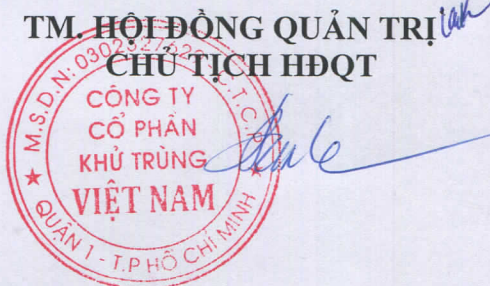 TM. HỘI ĐỒNG QUẢN TRỊ
CHỦ TỊCH HĐQT
CÔNG TY
CỔ PHẦN
KHỬ TRÙNG
VIỆT NAM
QUẬN 1 - T.P HỒ CHÍ MINH